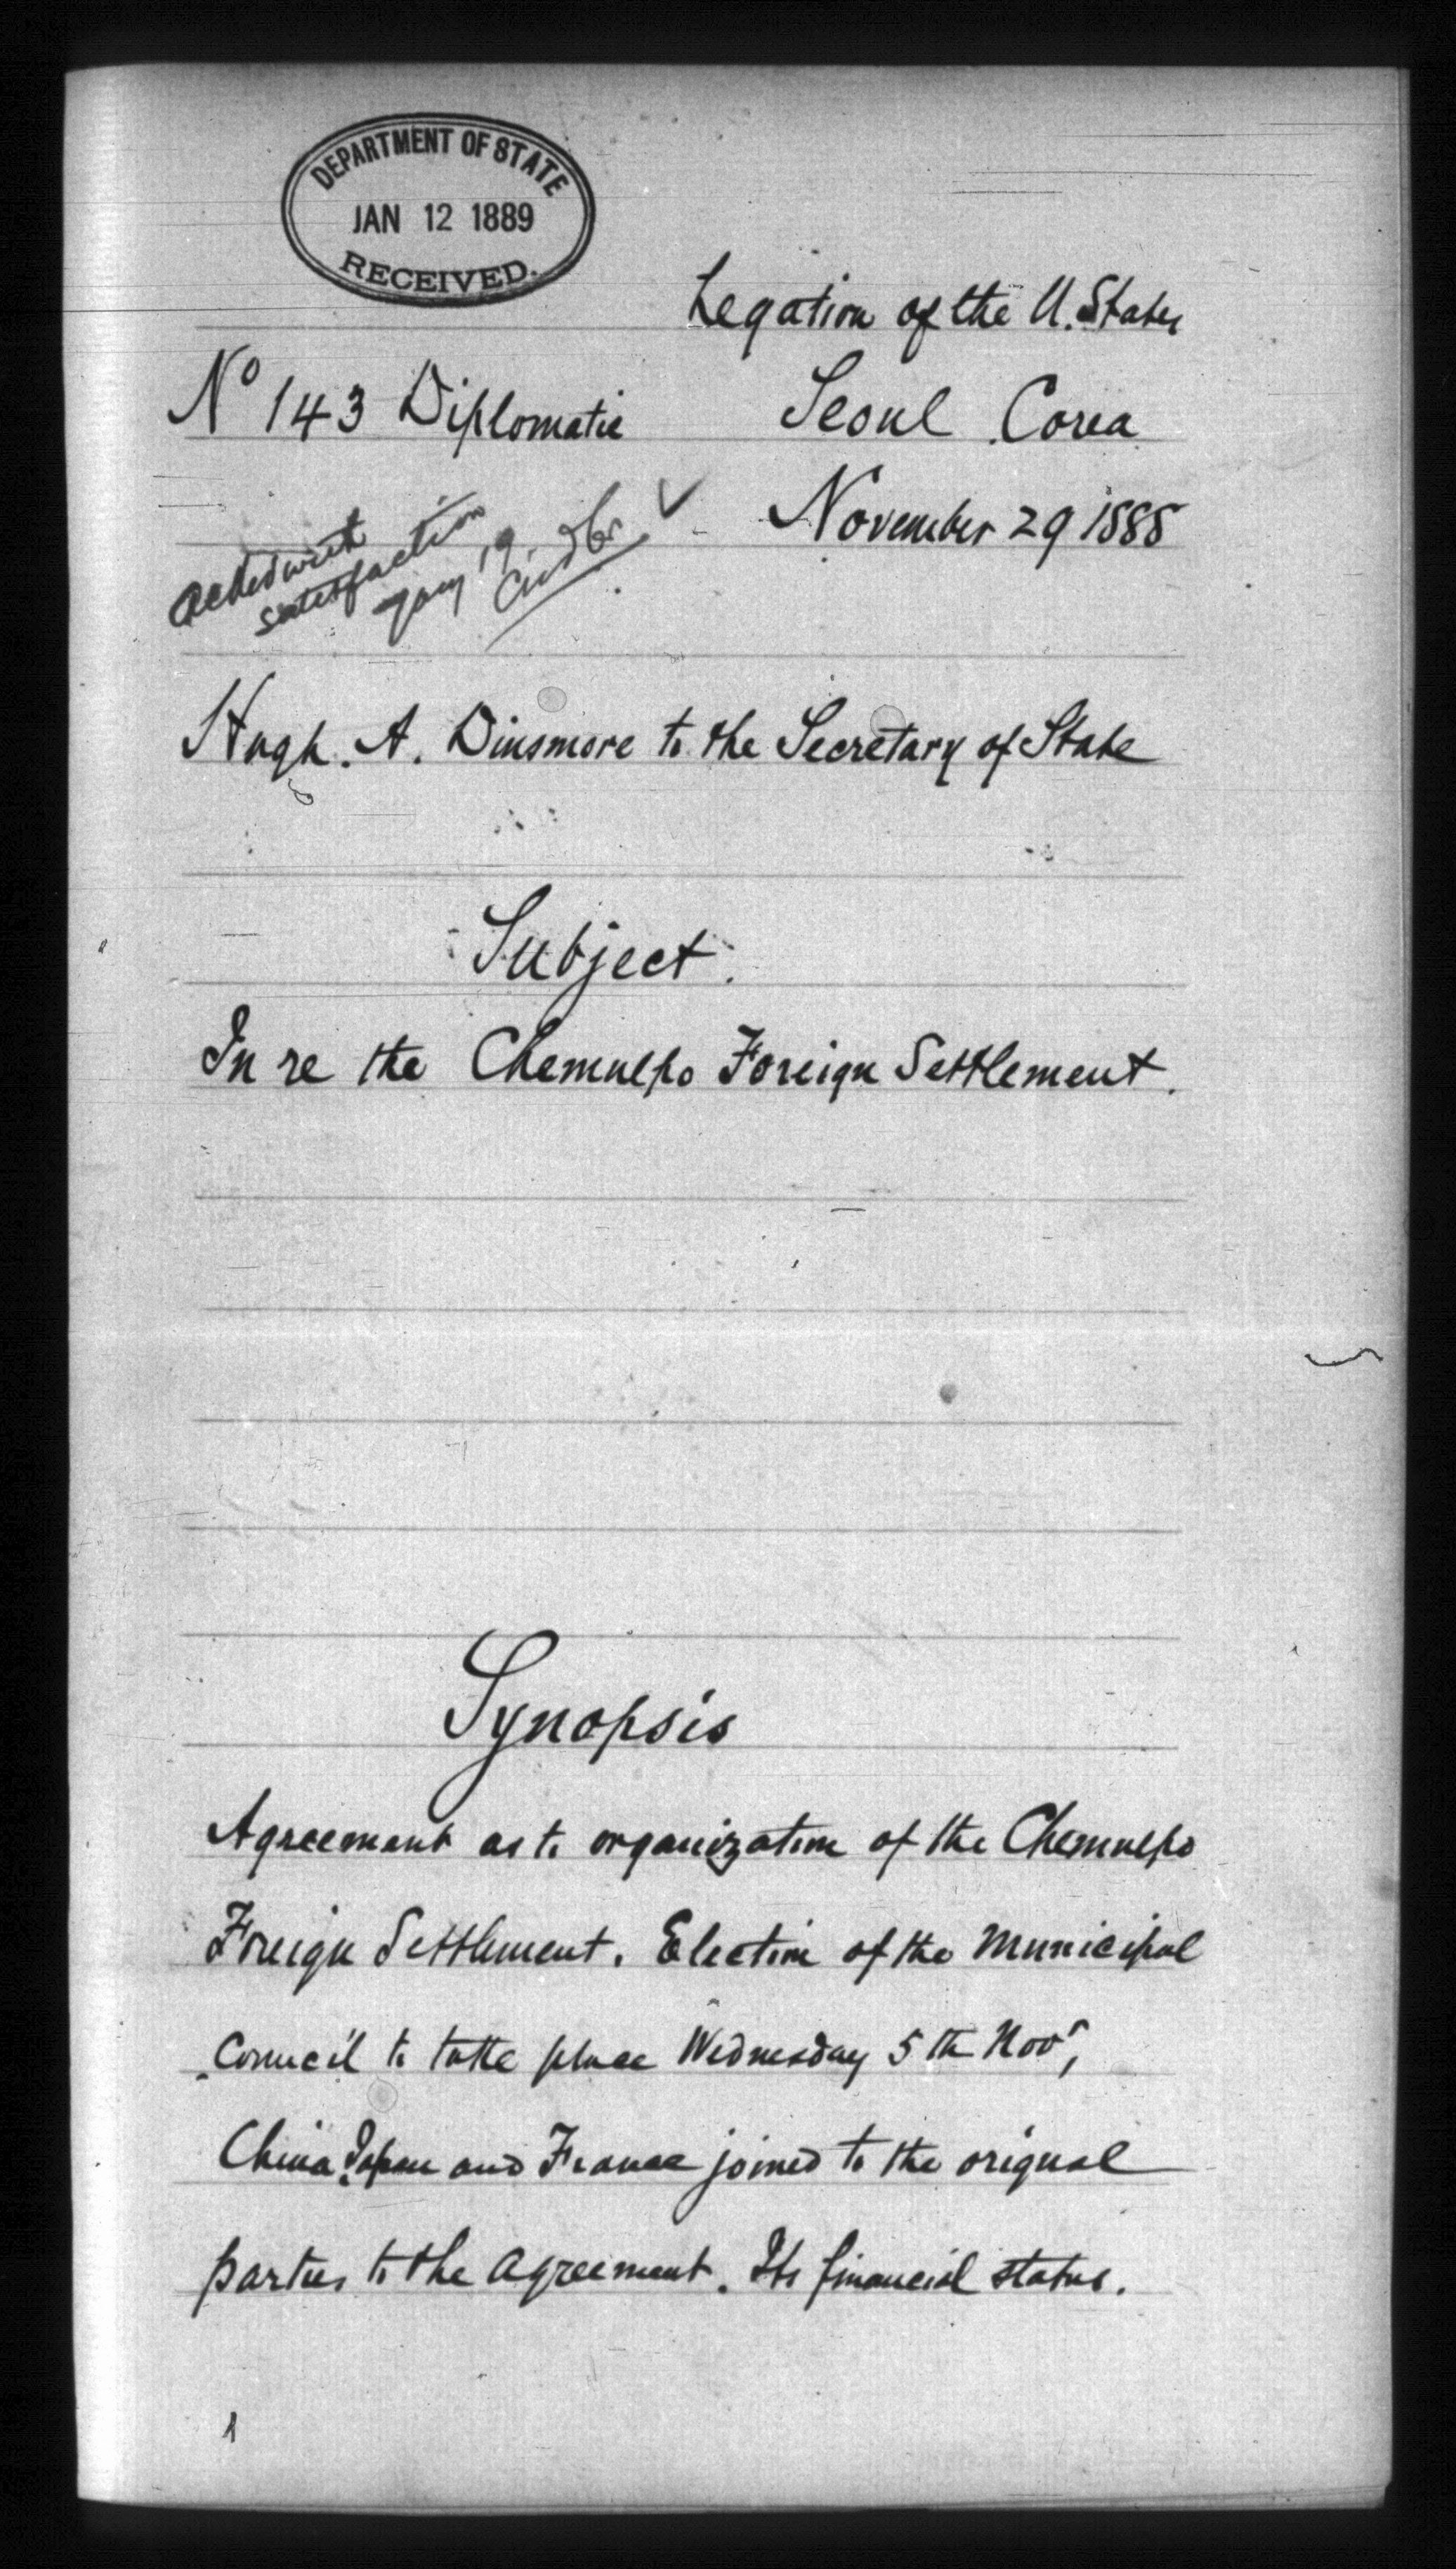 DEPARTMENT OF STATE
JAN 12 1889
RECEIVED.
Legation of the U. States
Nº 143 Diplomatic
Seoul Corea
November 29 1888
acked with
satisfaction
Jany 19
Hugh. A. Dinsmore to the Secretary of State
Subject.
In re the Chemulpo Foreign Settlement.
Synopsis
Agreement as to organization of the Chemulpo
Foreign Settlement. Election of the Municipal
Council to take place Wednesday 5th Novr,
China Japan and France joined to the original
parties to the agreement. Its financial status.
1